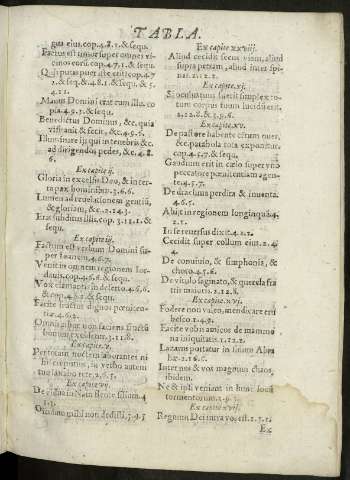 TABLA.
gua eius, cop. 4.8.1. & sequ.
Factus est timor super omnes vi
cinos eorū. cop. 4.7.1. & sequ.
Quis putas puer iste erit? cop. 4.7
1. & seq. & 4.8.1. & sequ. & 5.
4.11.
Manus Domini erat cum illo. co
pia 4.9.1. & sequ.
Benedictus Dominus, &c. quia
visitauit & fecit, &c. 4.9.6.
Illuminare ijs qui in tenebris &c.
ad dirigendos pedes, &c. 4.8.
6.
Ex capite ij.
Gloria in excelsis Deo, & in ter
ra pax hominibus. 3.6.6.
Lumen ad reuelationem gentiū,
& gloriam, &c. 2.14.3.
Erat subditus illis. cop. 3.11.1. &
sequ.
Ex capite iij.
Factum est verbum Domini su
per Ioannem. 4.6.7.
Venit in omnem regionem Ior-
danis. cop. 4.6.6. & sequ.
Vox clamantis in deserto. 4.6.6.
& cop. 4.6.1. & sequ.
Facite fructus dignos pœniten-
tiæ. 4.6.2.
Omnis arbor non faciens fructū
bonum excidetur. 3.11.8.
Ex capite v.
Per totam noctem laborantes ni
hil cepimus, in verbo autem
tuo laxabo rete. 2.6.5.
Ex capite vij.
De vidua in Naim flente filium. 4
1.3.
Osculum mihi non dedisti. 5.9.5
Ex capite xviij.
Aliud cecidit secus viam, aliud
supra petram, aliud inter spi-
nas. 2.12.2.
Ex capite xj.
Si oculus tuus fuerit simplex, to-
tum corpus tuum lucidū erit.
2.12.8. & 3.9.6.
Ex capite xv.
De pastore habente centum oues,
&c. parabola tota exponitur.
cop. 4.5.7. & sequ.
Gaudium erit in cœlo super vno
peccatore pœnitentiam agen-
te. 4.5.7.
De drachma perdita & inuenta.
4.6.5.
Abijt in regionem longinquā. 4.
2.1.
In se reuersus dixit. 4.2.2.
Cecidit super collum eius. 2.4.
4.
De conuiuio, & simphonia, &
choro. 4.5.6.
De vitulo saginato, & querela fra
tris maioris. 2.12.8.
Ex capite xvj.
Fodere non valeo, mendicare eru
besco. 1.4.9.
Facite vobis amicos de mamono
na iniquitatis. 1.12.2.
Lazarus portatur in sinum Abra
hæ. 2.16.6.
Inter nos & vos magnum chaos,
ibidem.
Ne & ipsi veniant in hunc locū
tormentorum. 2.9.3.
Ex capite xvij.
Regnum Dei intra vos est. 1.1.1.
Ex